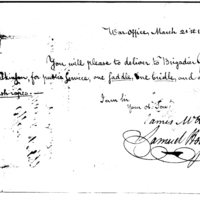 War-Office, March 21st
You will please to deliver to Brigadier
for public service, one saddle, one bridle, and
ropes.
I am Sir
Your ob. Serv.
James M
Samuel